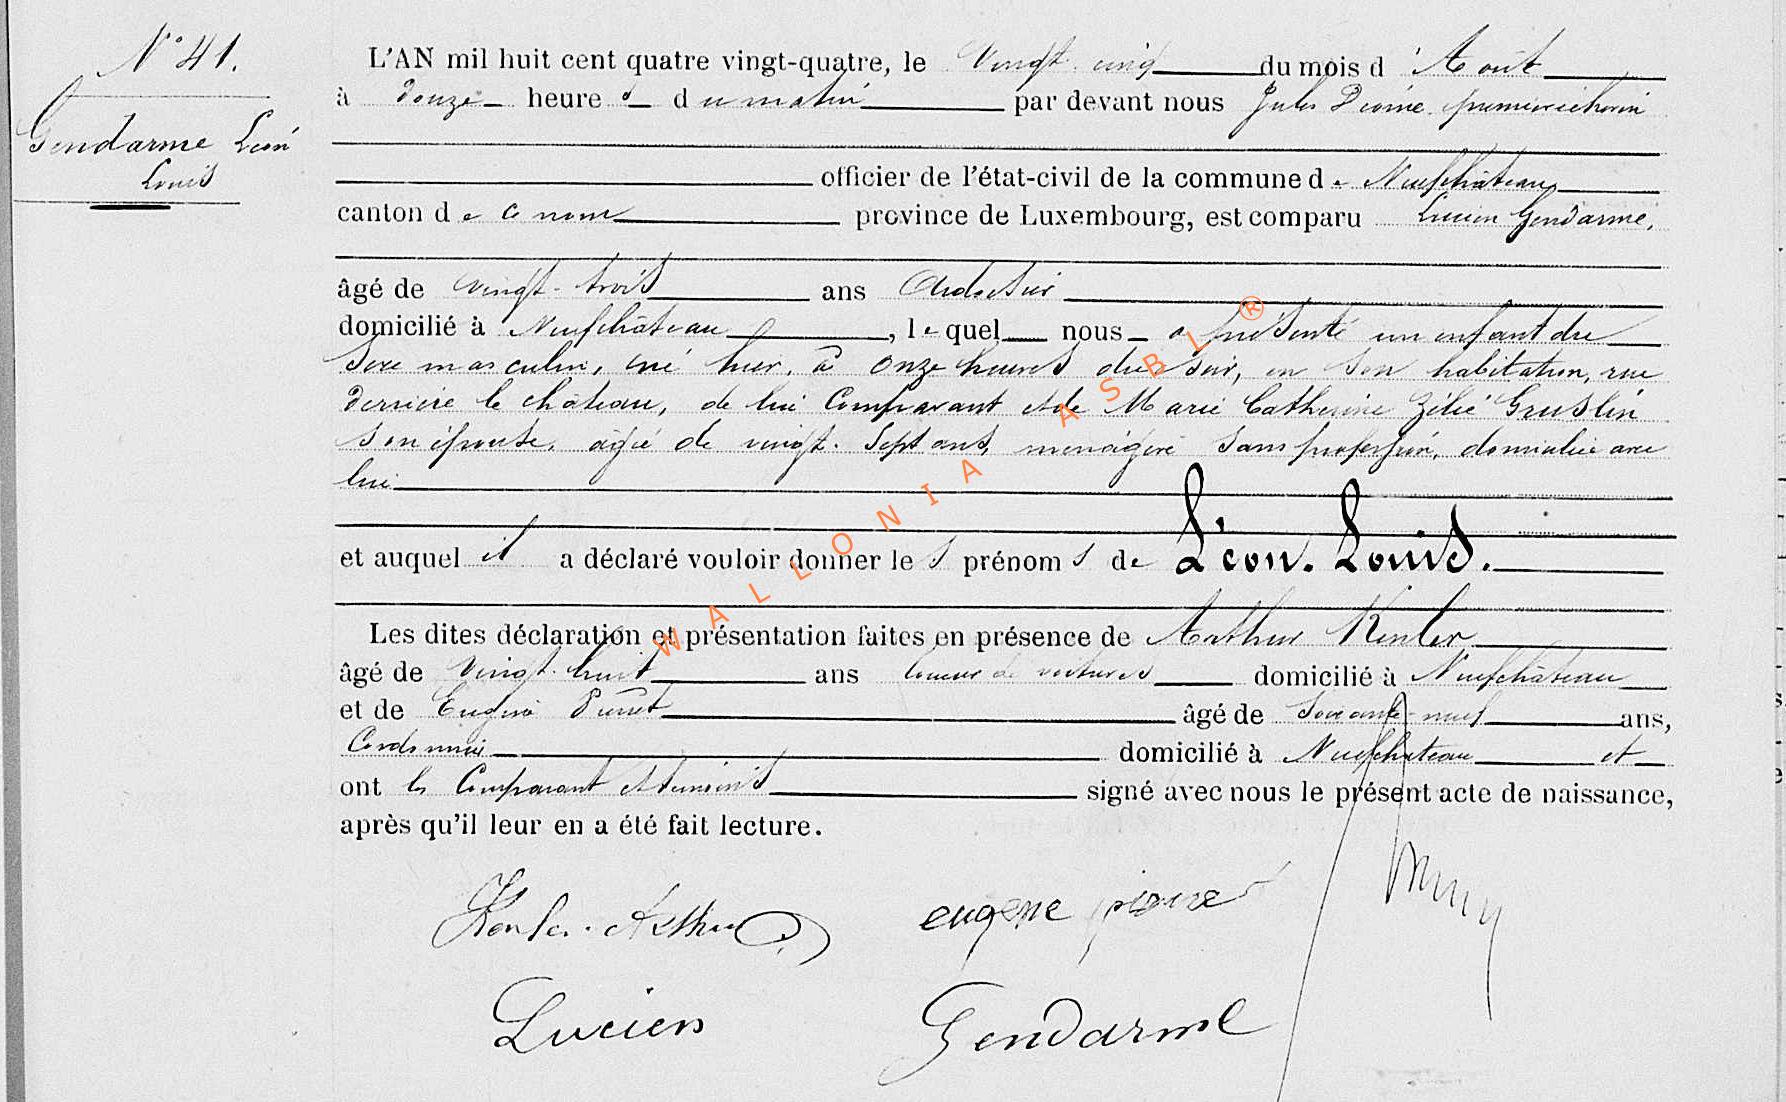 N° 41.
Gendarme Léon
Louis
L'AN mil huit cent quatre vingt-quatre, le vingt cinq du mois d'Août
à douze heures du matin par devant nous Jules premier échevin
officier de l'état-civil de la commune de Neufchâteau
canton de ce nom province de Luxembourg, est comparu Lucien Gendarme,
âgé de vingt-trois ans Ardoisier
domicilié à Neufchâteau, lequel nous a présenté un enfant du
sexe masculin, né hier, à onze heures du soir, en son habitation, rue
derrière le château, de lui Comparant et de Marie Catherine Zélie Gruslin
son épouse, âgée de vingt-sept ans, ménagère sans profession, domiciliée avec
lui
et auquel il a déclaré vouloir donner les prénoms de Léon. Louis.
Les dites déclaration et présentation faites en présence de Arthur Kenler
âgé de vingt-huit ans loueur de voitures domicilié à Neufchâteau
et de Eugène Pierret âgé de soixante-neuf ans,
Cordonnier domicilié à Neufchateau et
ont les Comparant et témoins signé avec nous le présent acte de naissance,
après qu'il leur en a été fait lecture.
Kenler Arthur eugene pierret
Lucien Gendarme
WALLONIA ASBL ®